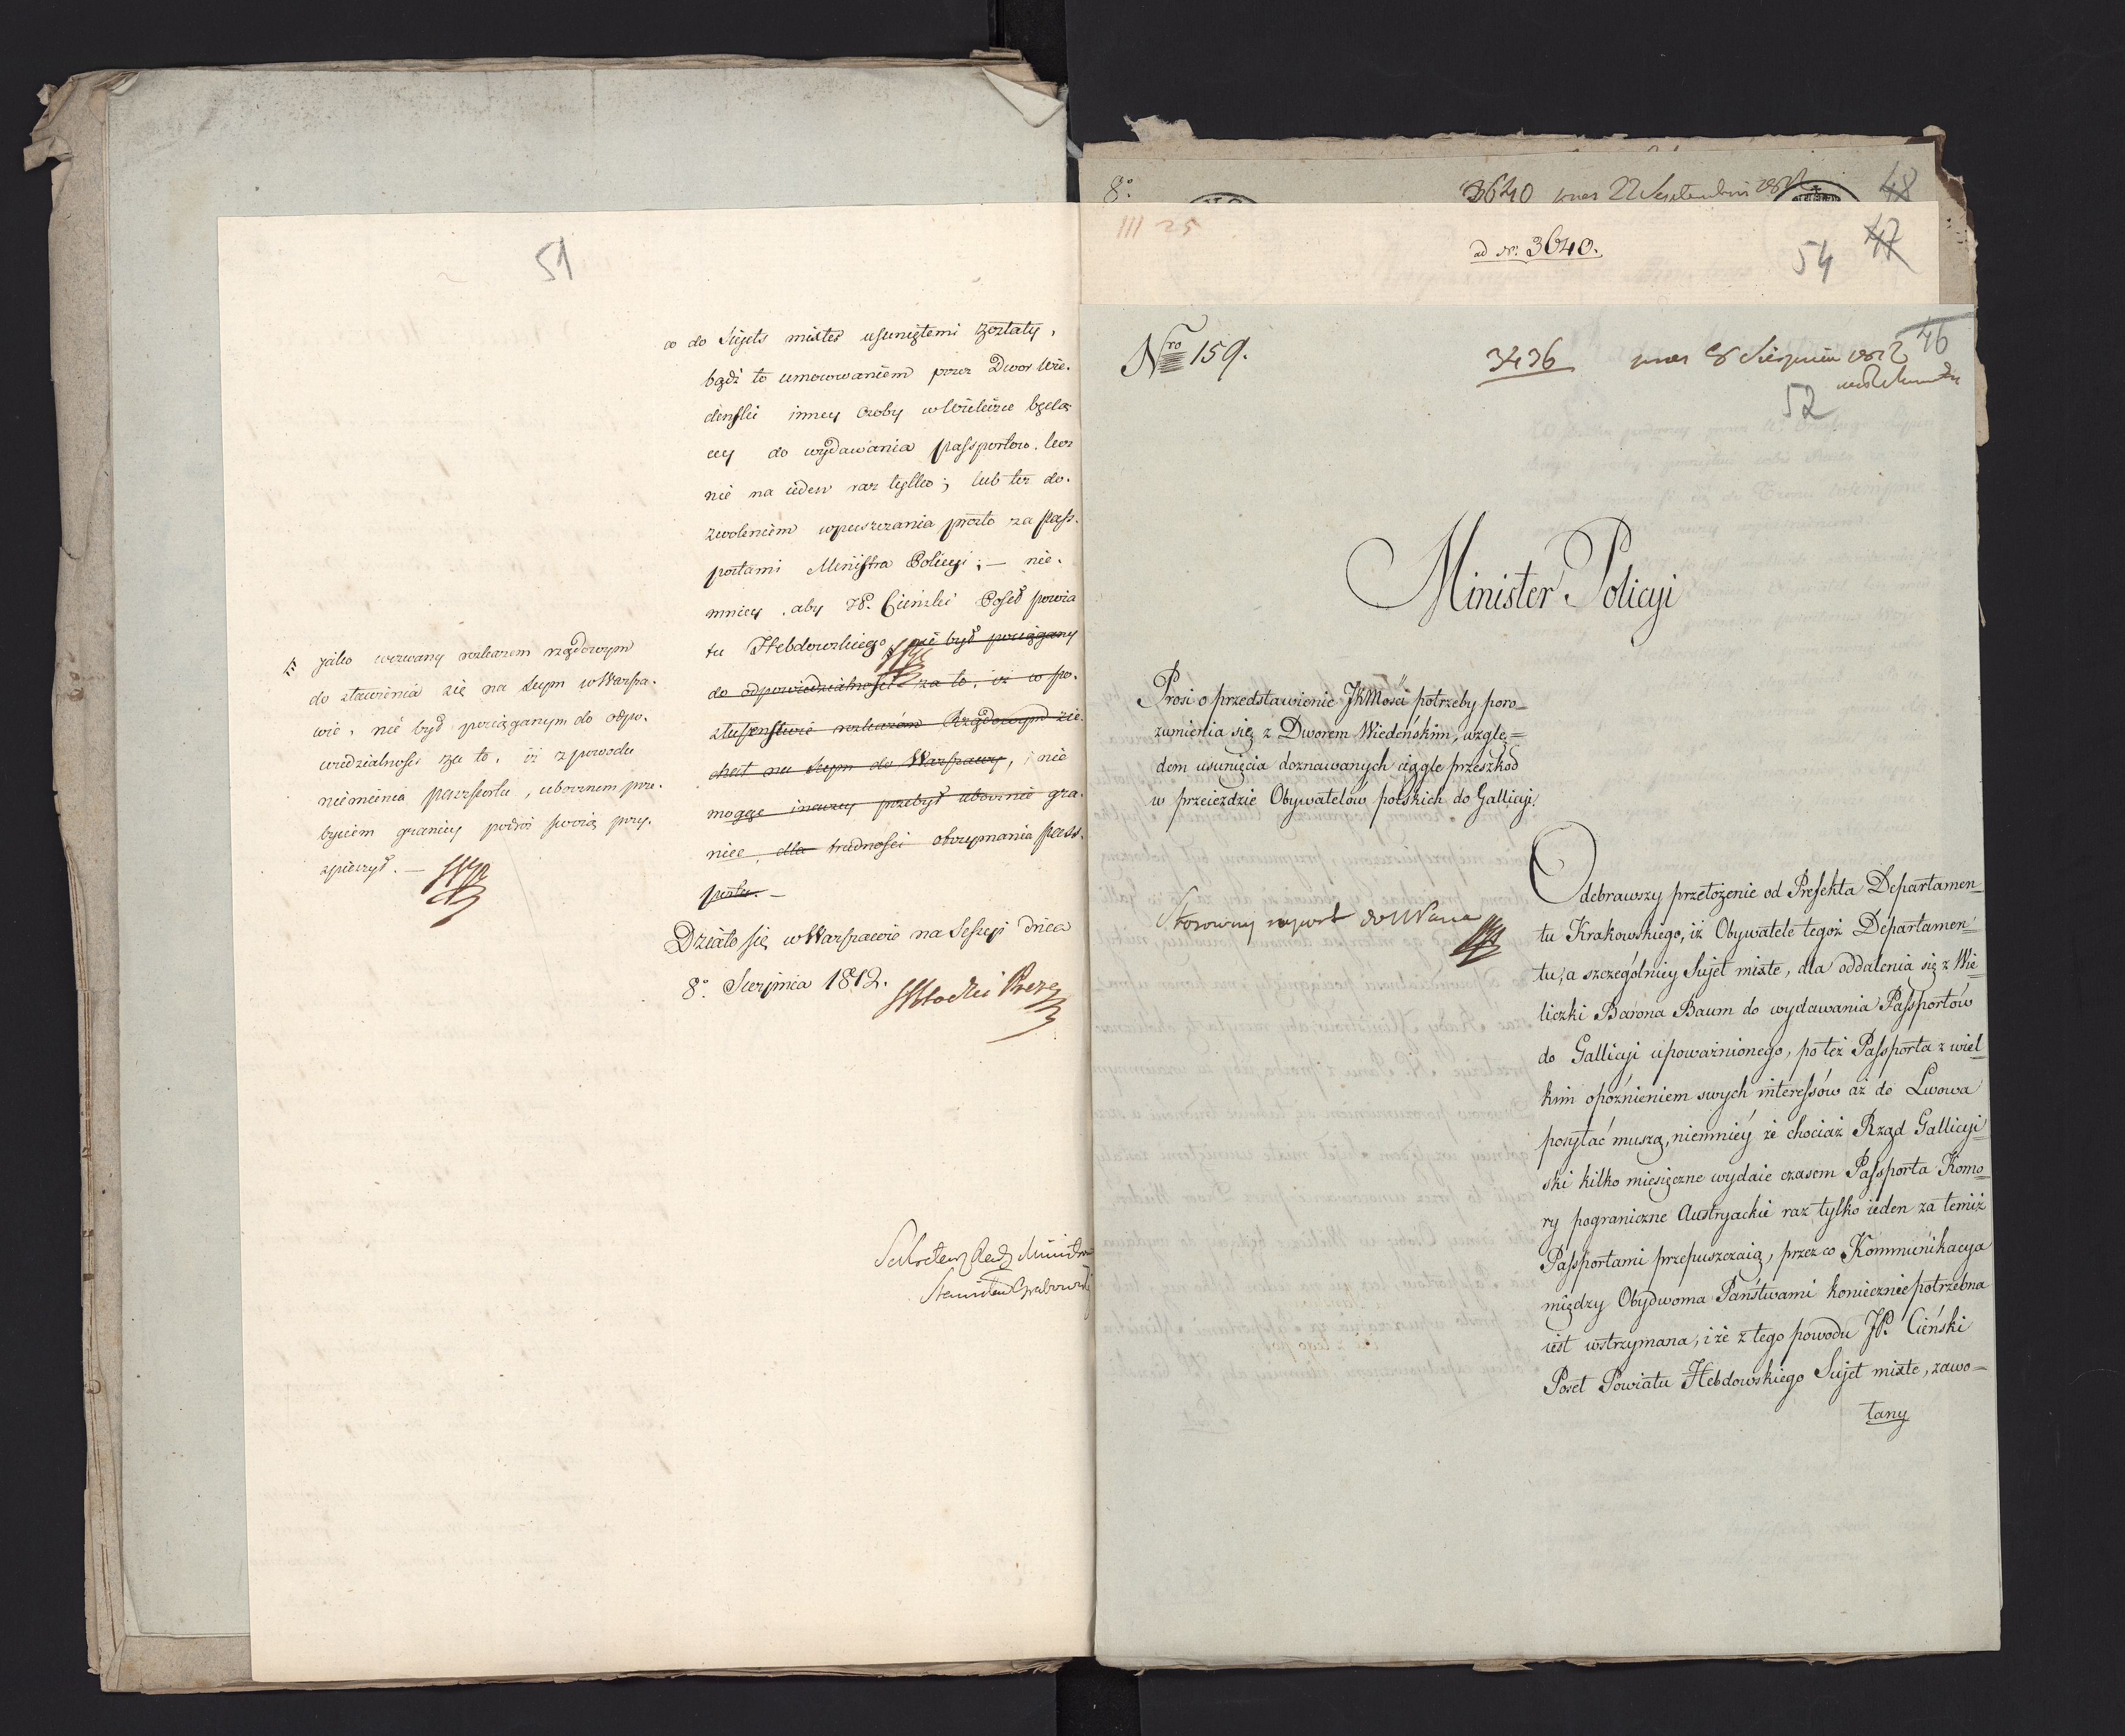 51
co do Sujets mixtes usuniętemi zostały,
bądź to umocowaniem przez Dwor Wie-
deński inney Osoby w Wieliczce będą-
cey do wydawania passportow. lecz
nie na ieden raz tylko; lub też do-
zwoleniem wpuszczania prosto za pass-
portami Ministra Policyi; — nie-
mniey, aby JP. Cieński Poseł powia
tu Hebdowskiego, nie był pociągany
do odpowiedzialności za to, iż w po-
słuszeństwie rozkazów Rządowych zie-
chał na Seym do Warszawy, i nie
mogąc inaczey przebył ubocznie gra-
nice, dla trudności otrzymania pass-
portu. —
Jako wezwany rozkazem rządowym
do stawienia się na Seym w Warsza-
wie, nie był pociąganym do odpo-
wiedzialności za to, iż z powodu
niemienia paszportu, ubocznem prze-
byciem granicy podróż swoią przy-
spieszył. —
Działo się w Warszawie na Sessyi dnia
8° Sierpnia 1812.
Sekretarz Rady Ministrow
Stanisław Grabowski
8°
3640 prues 22 Septembris 1812
48
III 25
ad Nr. 3640.
54 47
Nro 159.
3436 prues 8 Sierpnia 1812
46
52
Minister Policyi
Prosi o przedstawienie JKMości potrzeby poro-
zumienia się z Dworem Wiedeńskim, wzglę=
dem usunięcia doznawanych ciągle przeszkod
w przeieździe Obywatelów polskich do Gallicyi.
Stosowny raport do NPana
Odebrawszy przełożenie od Prefekta Departamen=
tu Krakowskiego, iż Obywatele tegoż Departamen=
tu, a szczególniey Sujet mixte, dla oddalenia się z Wie=
liczki Barona Baum do wydawania Passportów
do Gallicyi upoważnionego, po też Passporta z wiel=
kim opóźnieniem swych interessów aż do Lwowa
posyłać muszą, niemniéy że chociaż Rząd Gallicyi=
ski kilko miesięczne wydaie czasem Passporta Komo=
ry pograniczne Austryackie raz tylko ieden za temiż
Passportami przepuszczaią, przez co Kommunikacya
między Obydwoma Państwami koniecznie potrzebna
iest wstrzymana, i że z tego powodu JP. Cieński
Poseł Powiatu Hebdowskiego Sujet mixte, zawo=
łany